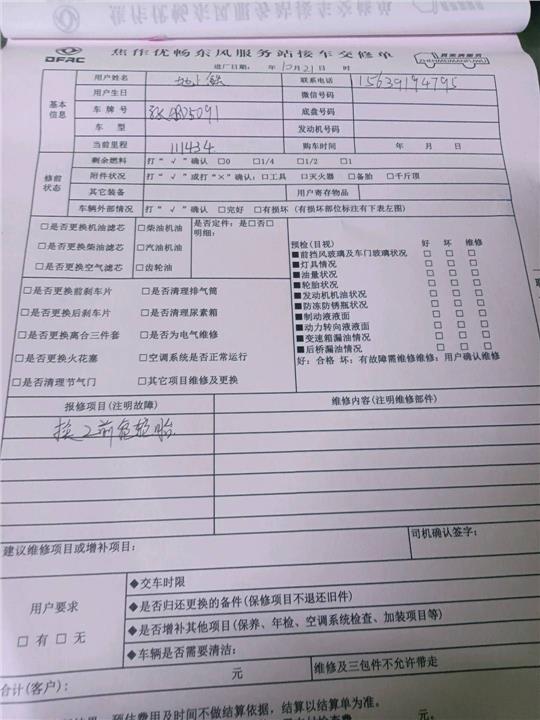 DFAC
焦作优畅东风服务站接车交修单
进厂日期： 年 10月21日 时
基本信息
用户姓名
联系电话 15639194795
用户生日
微信号码
车牌号
底盘号码
车 型
发动机号码
当前里程 111434
购车时间 年 月 日
修前状态
剩余燃料 打“√”确认 □0 □1/4 □1/2 □1
附件状况 打“√”或打“×”确认：□工具 □灭火器 □备胎 □千斤顶
其它装备 用户寄存物品
车辆外部情况 打“√”确认 □完好 □有损坏（有损坏部位标注有下表左图）
□是否更换机油滤芯 □柴油机油 是否定件：是□否□
明细：
□是否更换柴油滤芯 □汽油机油
□是否更换空气滤芯 □齿轮油
□是否更换前刹车片 □是否清理排气筒
□是否更换后刹车片 □是否清理尿素箱
□是否更换离合三件套 □是否为电气维修
□是否更换火花塞 □空调系统是否正常运行
□是否清理节气门 □其它项目维修及更换
预检(目视) 好 坏 维修
■前挡风玻璃及车门玻璃状况 □ □ □
■灯具情况 □ □ □
■油量状况 □ □ □
■轮胎状况 □ □ □
■发动机机油状况 □ □ □
■防冻防锈瓶状况 □ □ □
■制动液液面 □ □ □
■动力转向液液面 □ □ □
■变速箱漏油情况 □ □ □
■后桥漏油情况 □ □ □
好：合格 坏：有故障需维修维修：用户确认维修
报修项目(注明故障)
维修内容(注明维修部件)
建议维修项目或增补项目：
司机确认签字：
用户要求
□ 有 □ 无
◆交车时限
◆是否归还更换的备件(保修项目不退还旧件)
◆是否增补其他项目(保养、年检、空调系统检查、加装项目等)
◆车辆是否需要清洁：
合计(客户)： 元 维修及三包件不允许带走
预估费用及时间不做结算依据，结算以结算单为准。